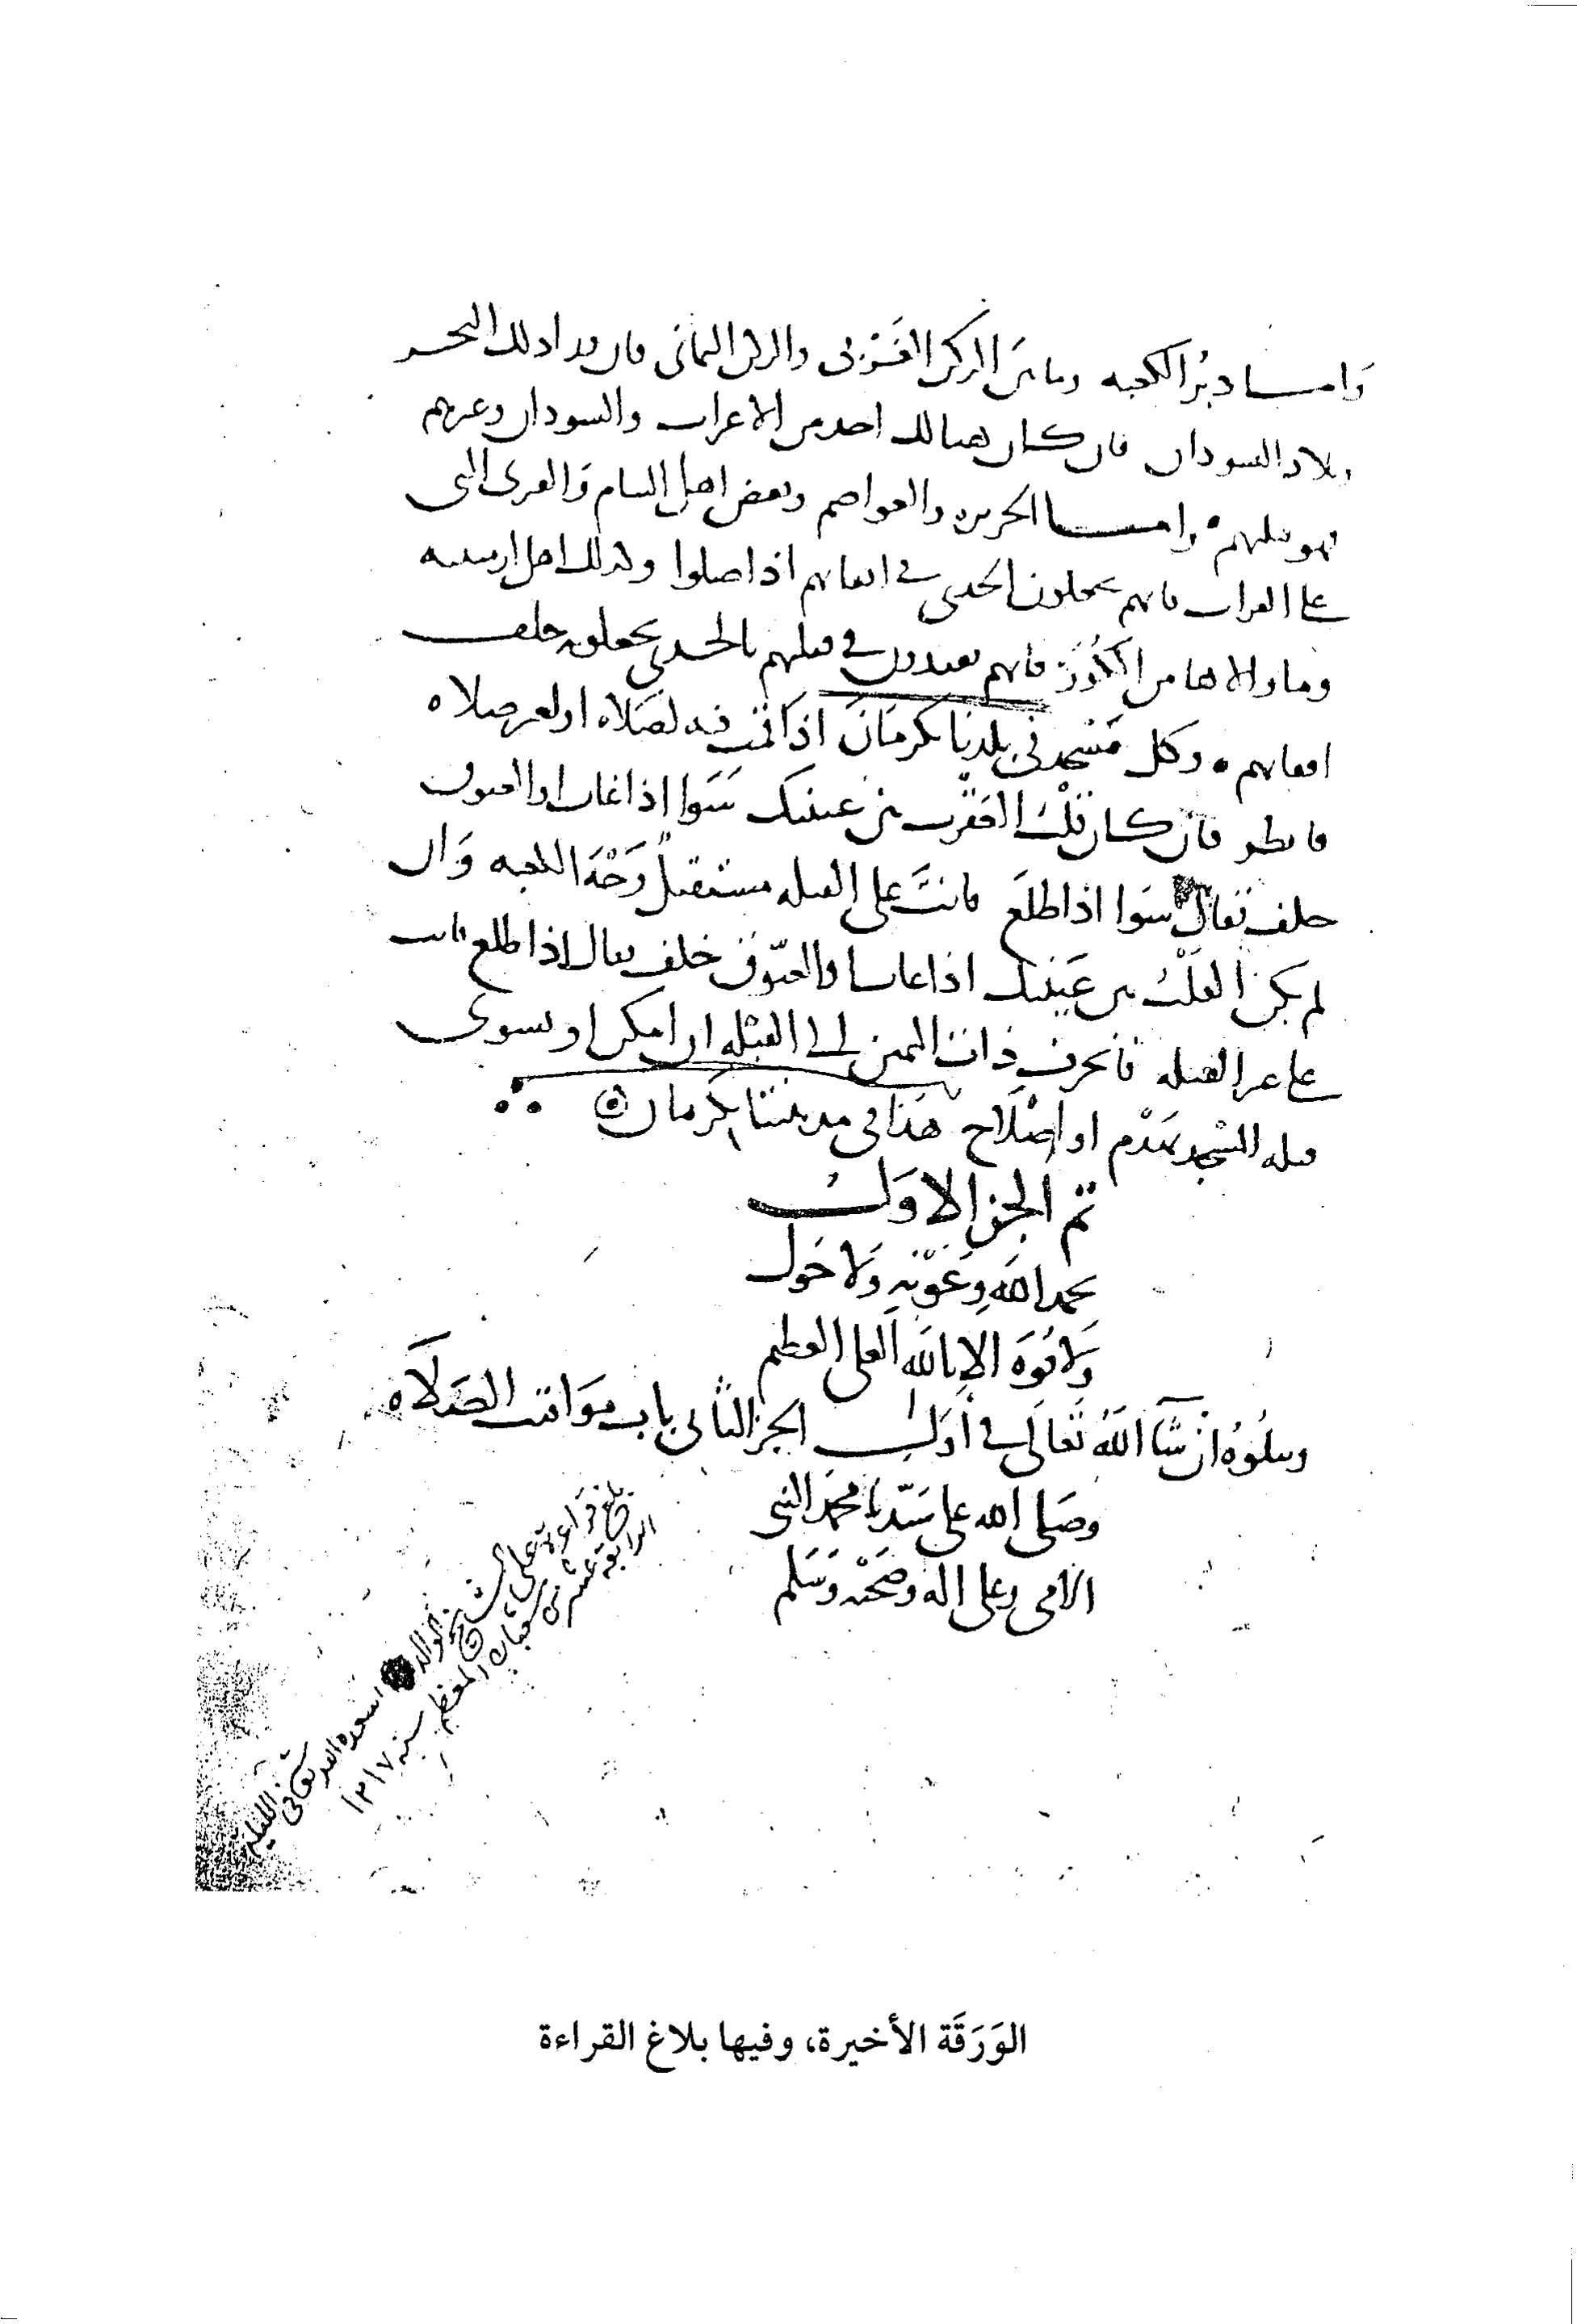 وامـــا دبر الكعبه وما بين الركن الغربى والركن اليمانى فان مداد لك البحـــر
وبلاد السودان فان كـــان هنالك احد من الاعراب والسودان وغيرهم
فهو قبلهم • وامـــا الجزيره والعواصم وبعض اهل الشام والقرى التى
على الفرات فانهم يجعلون الجدى فى اقفائهم اذا صلوا وكذلك اهل ارمينيه
وما والاها من الكُوَر فانهم يقتدون فى قبلتهم بالجدى يجعلونه خلف
اقفائهم • وكل مَسْجد فى بلدنا بكرمَانَ اذا كنت فيه لصَلاه او لغير صلاه
فانظر فان كـــان قَلْبُ العَقْرب بين عينيك سَوَا اذا غاب او العيوق
خلف قفاك سَوا اذا طلَع فانتَ على القبله مستقبلٌ وَجْهَ الكعبه وَان
لم يكن القلْبُ بين عَينيك اذا غاب او العيّوق خلف قفاك اذا طلع فانت
على غير القبله فانحرف ذات اليمين الى القبْله ان امكن او يسوى
قبله المسْجد بهَدْم او اصْلاح هذا فى مدينتنا بكرمان
تم الجز الاوَلُ
بحمد الله وعَوْنِه وَلا حَول
وَلا قوَه الا بالله العلى العظيم
ويتلُوهُ ان شَآ اللهُ تَعَالَى فى أوّل الجز الثانى باب مَوَاقيت الصَّلَاه
وصَلى الله على سَيّدنا محمَّد النبى
الامى وعلى اله وصَحْبه وَسَلم
بلغ قراءة على الشيخ الوالد اسعده الله تعالى الليلة
الرابعة عشر من شعبان المعظم سنه ١٣١٧
الوَرَقَة الأخيرة، وفيها بلاغ القراءة